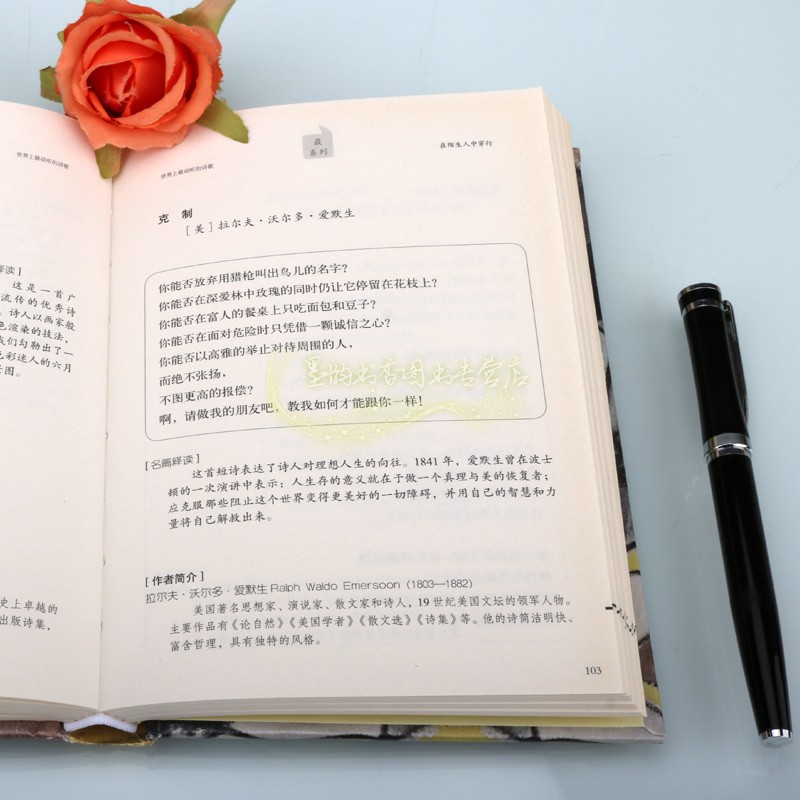 世界上最动听的诗歌
释读]
这是一首广
流传的优秀诗
。诗人以画家般
色渲染的技法，
我们勾勒出了一
色彩迷人的六月
景图。
史上卓越的
出版诗集，
世界上最动听的诗歌
最
系列
在陌生人中穿行
克 制
[美] 拉尔夫·沃尔多·爱默生
你能否放弃用猎枪叫出鸟儿的名字？
你能否在深爱林中玫瑰的同时仍让它停留在花枝上？
你能否在富人的餐桌上只吃面包和豆子？
你能否在面对危险时只凭借一颗诚信之心？
你能否以高雅的举止对待周围的人，
而绝不张扬，
不图更高的报偿？
啊，请做我的朋友吧，教我如何才能跟你一样！
墨的书香图书专营店
[名篇释读]
这首短诗表达了诗人对理想人生的向往。1841 年，爱默生曾在波士
顿的一次演讲中表示：人生存的意义就在于做一个真理与美的恢复者；
应克服那些阻止这个世界变得更美好的一切障碍，并用自己的智慧和力
量将自己解救出来。
[作者简介]
拉尔夫·沃尔多·爱默生 Ralph Waldo Emersoon（1803—1882）
美国著名思想家、演说家、散文家和诗人，19 世纪美国文坛的领军人物。
主要作品有《论自然》《美国学者》《散文选》《诗集》等。他的诗简洁明快、
富含哲理，具有独特的风格。
103